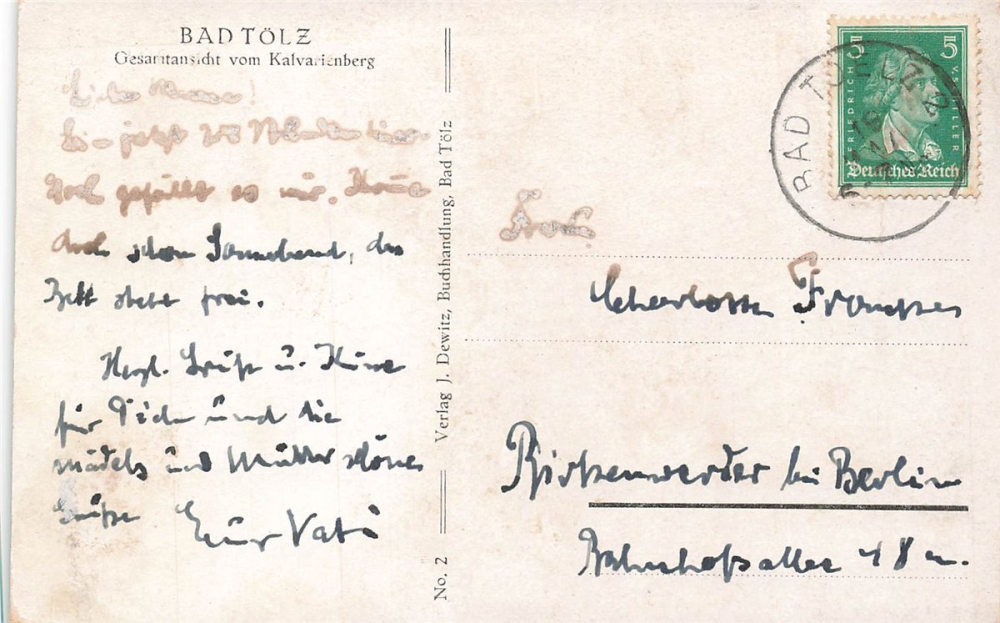 BAD TÖLZ
Gesamtansicht vom Kalvarienberg
jetzt
Doch gefällt es mir.
doch schon Sonnabend, das
Bett steht frei.
Herzl. Grüße u. Küsse
für Dich und die
Mädels und Mutter schöne
Grüße Euer Vati
No. 2
Verlag J. Dewitz, Buchhandlung, Bad Tölz
BAD TÖLZ
5 5
FRIEDRICH V. SCHILLER
Deutsches Reich
Frau
Charlotte
Birkenwerder bei Berlin
Bahnhofsallee 48 a.